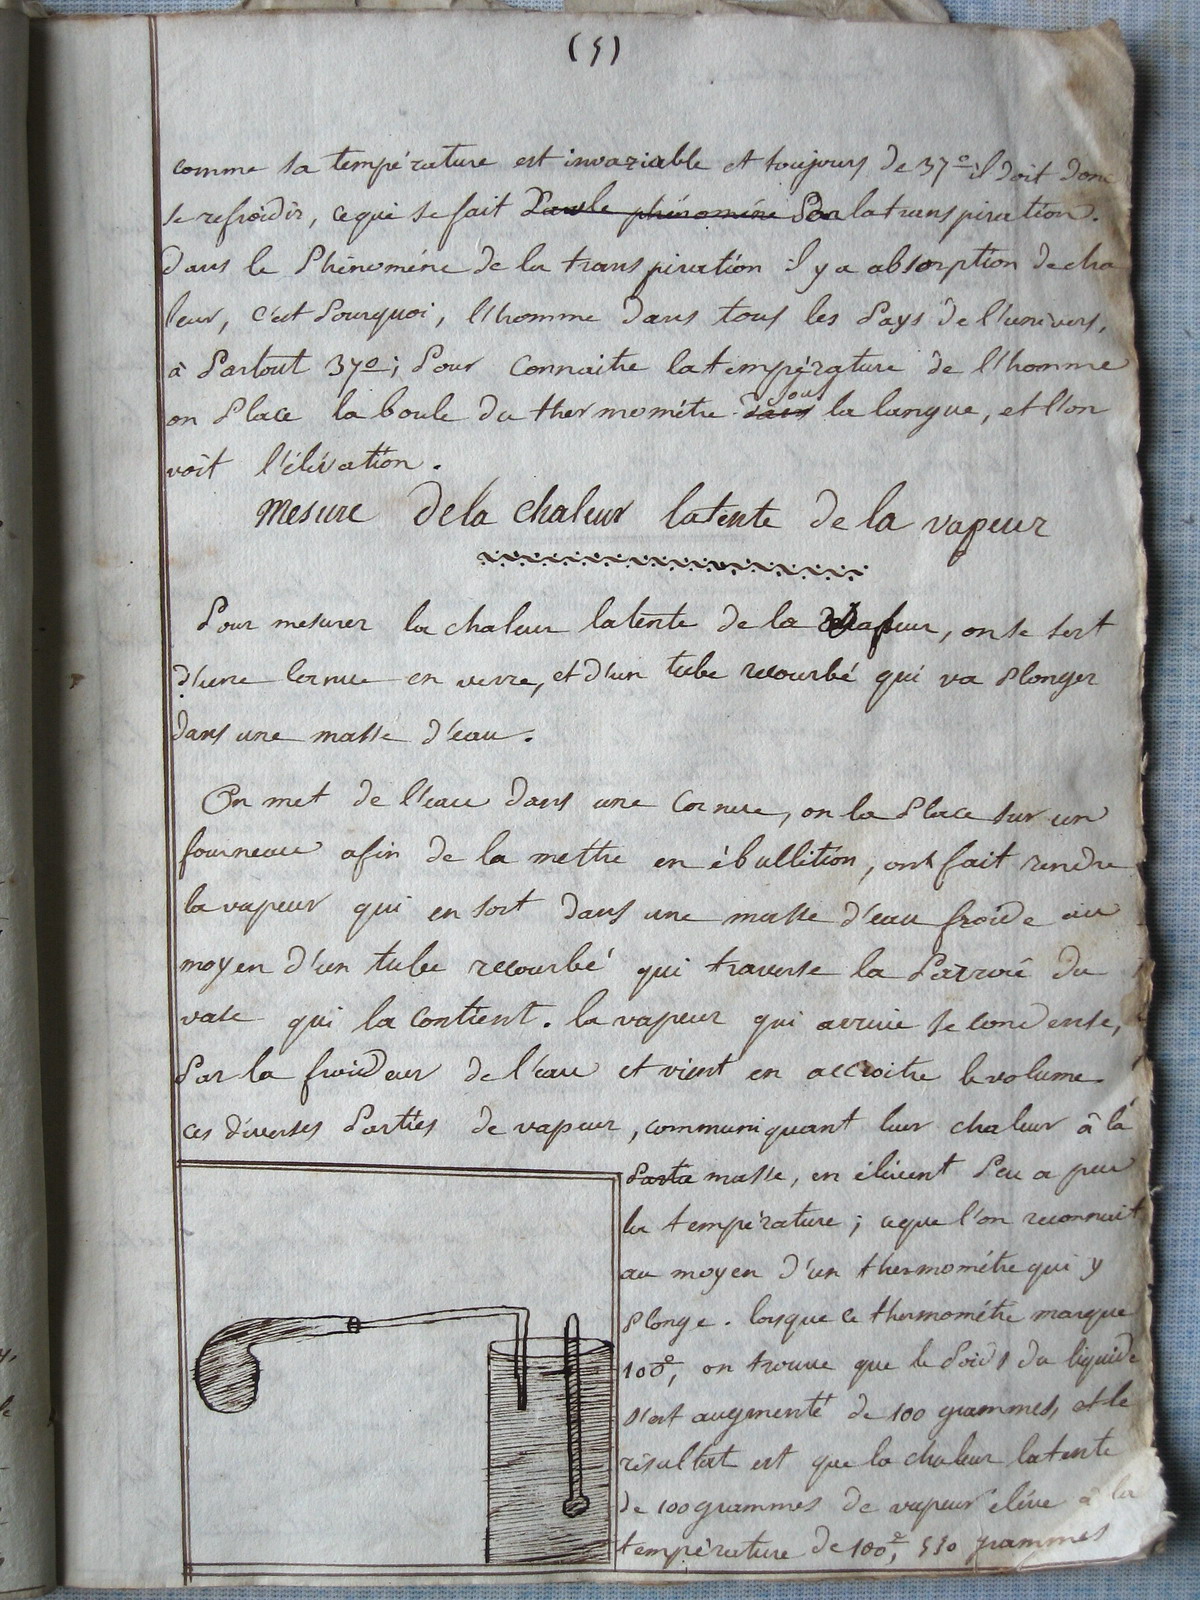 (5)
comme sa température est invariable et toujours de 37° il doit donc
se refroidir, ce qui se fait Dans le phénomène Par la transpiration.
Dans le Phénoméne de la transpiration il y a absorption de cha
leur, c'est Pourquoi, l'homme dans tous les Pays de l'univers,
à Partout 37°; Pour connaitre la température de l'homme
on Place la boule du thermométre dans sous la langue, et l'on
voit l'élévation.
Mesure de la chaleur latente de la vapeur
Pour mesurer la chaleur latente de la vapeur, on se sert
d'une cornue en verre, et d'un tube recourbé qui va Plonger
dans une masse d'eau.
On met de l'eau dans une cornue, on la Place sur un
fourneau afin de la mettre en ébullition, ont fait rendre
la vapeur qui en sort dans une masse d'eau froide au
moyen d'un tube recourbé qui traverse la Parroie du
vase qui la contient. la vapeur qui arrive se condense,
Par la froideur de l'eau et vient en accroitre le volume.
ces diverses Parties de vapeur, communiquant leur chaleur à la
masse, en élévent Peu a peu
la température; ce que l'on reconnait
au moyen d'un thermométre qui y
Plonge. lorsque ce thermométre marque
100°, on trouve que le Poids du liquide
s'est augmenté de 100 grammes, et le
résultat est que la chaleur latente
de 100 grammes de vapeur éléve à la
température de 100°, 550 grammes